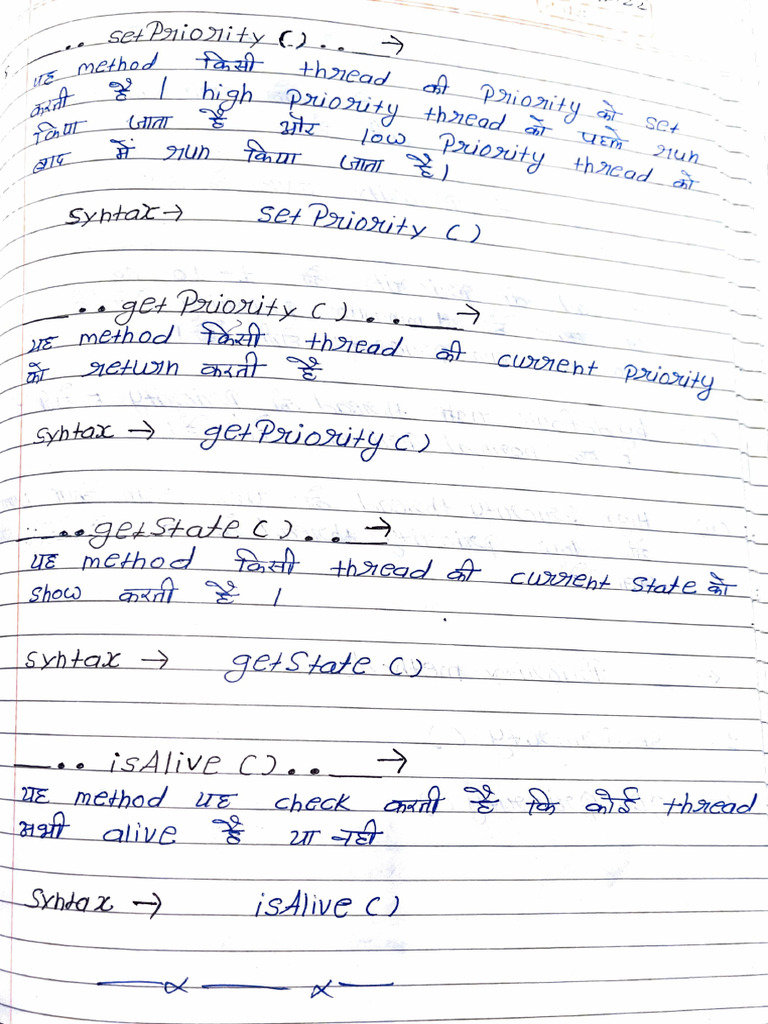 __.. setPriority ( )... →
यह method किसी thread की priority को set
करती है । high priority thread को पहले run
किया जाता है और low priority thread को
बाद में run किया जाता है।
syntax → setPriority ( )
__.. getPriority ( ) . .. __→
यह method किसी thread की current priority
को return करती है
syntax → getPriority ( )
.. ..getState ( ) . . __→
यह method किसी thread की current state को
show करती है ।
syntax → getState ( )
__.. isAlive ( ) . . __→
यह method यह check करती है कि कोई thread
अभी alive है या नही
Syntax → isAlive ( )